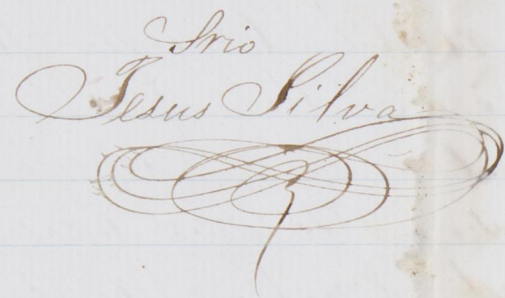 Srio
Jesus Silva